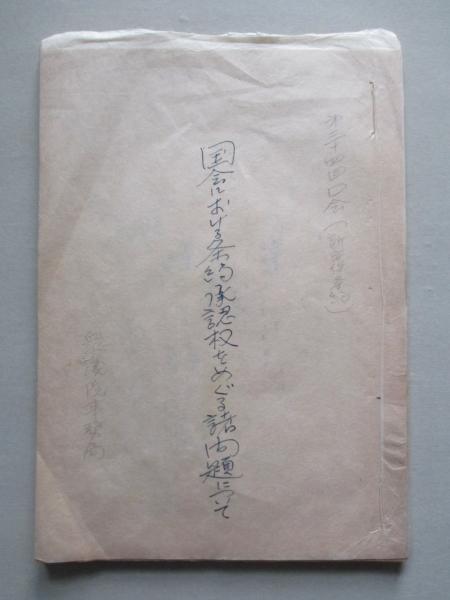 第三十四回国会（新安保条約）
国会における条約承認权をめぐる諸問題について
衆議院事務局